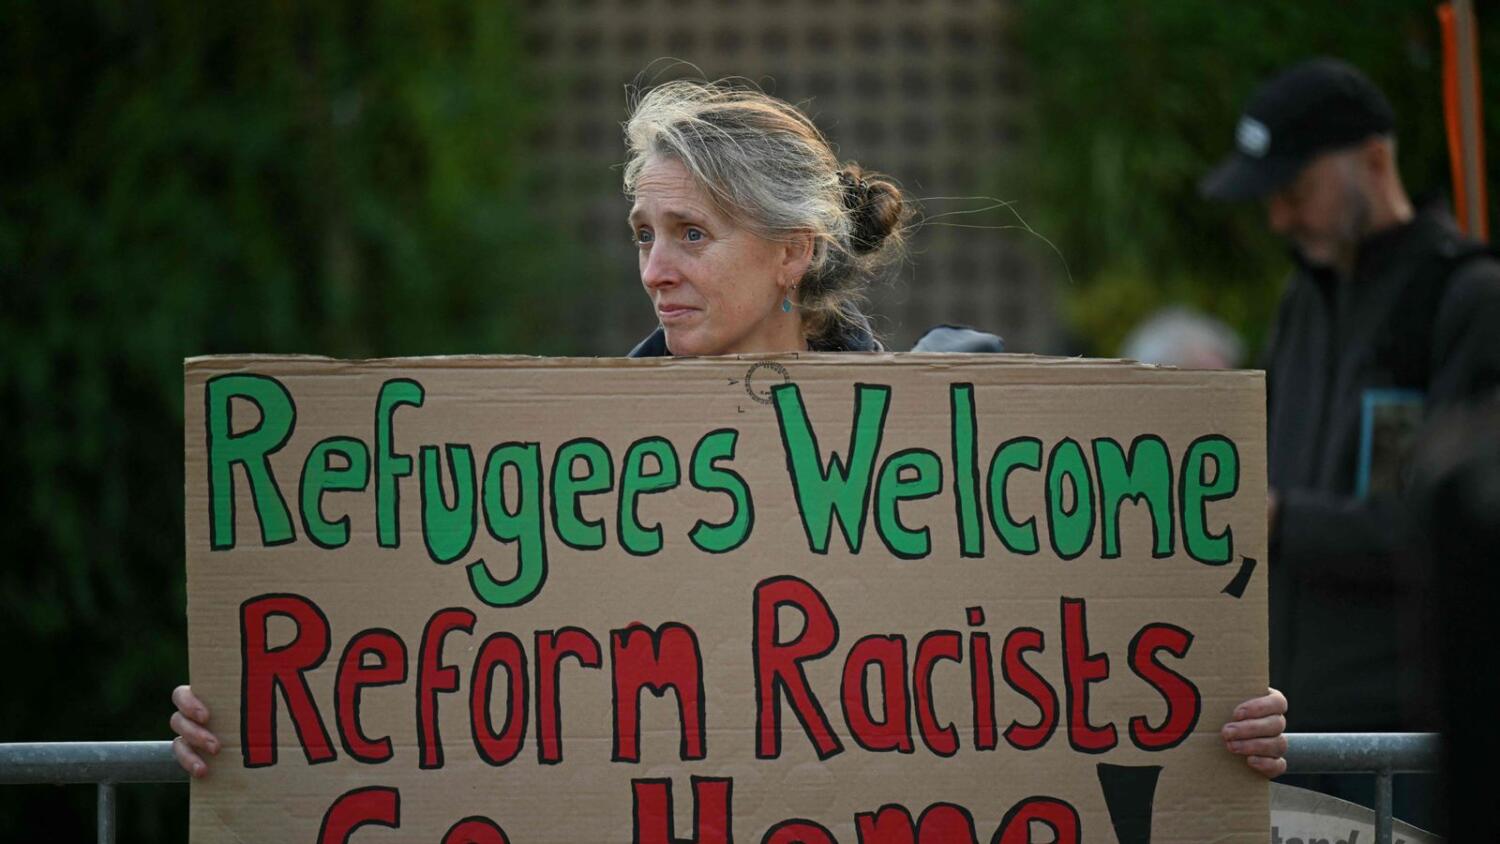 Refugees Welcome,
Reform Racists
Go Home!